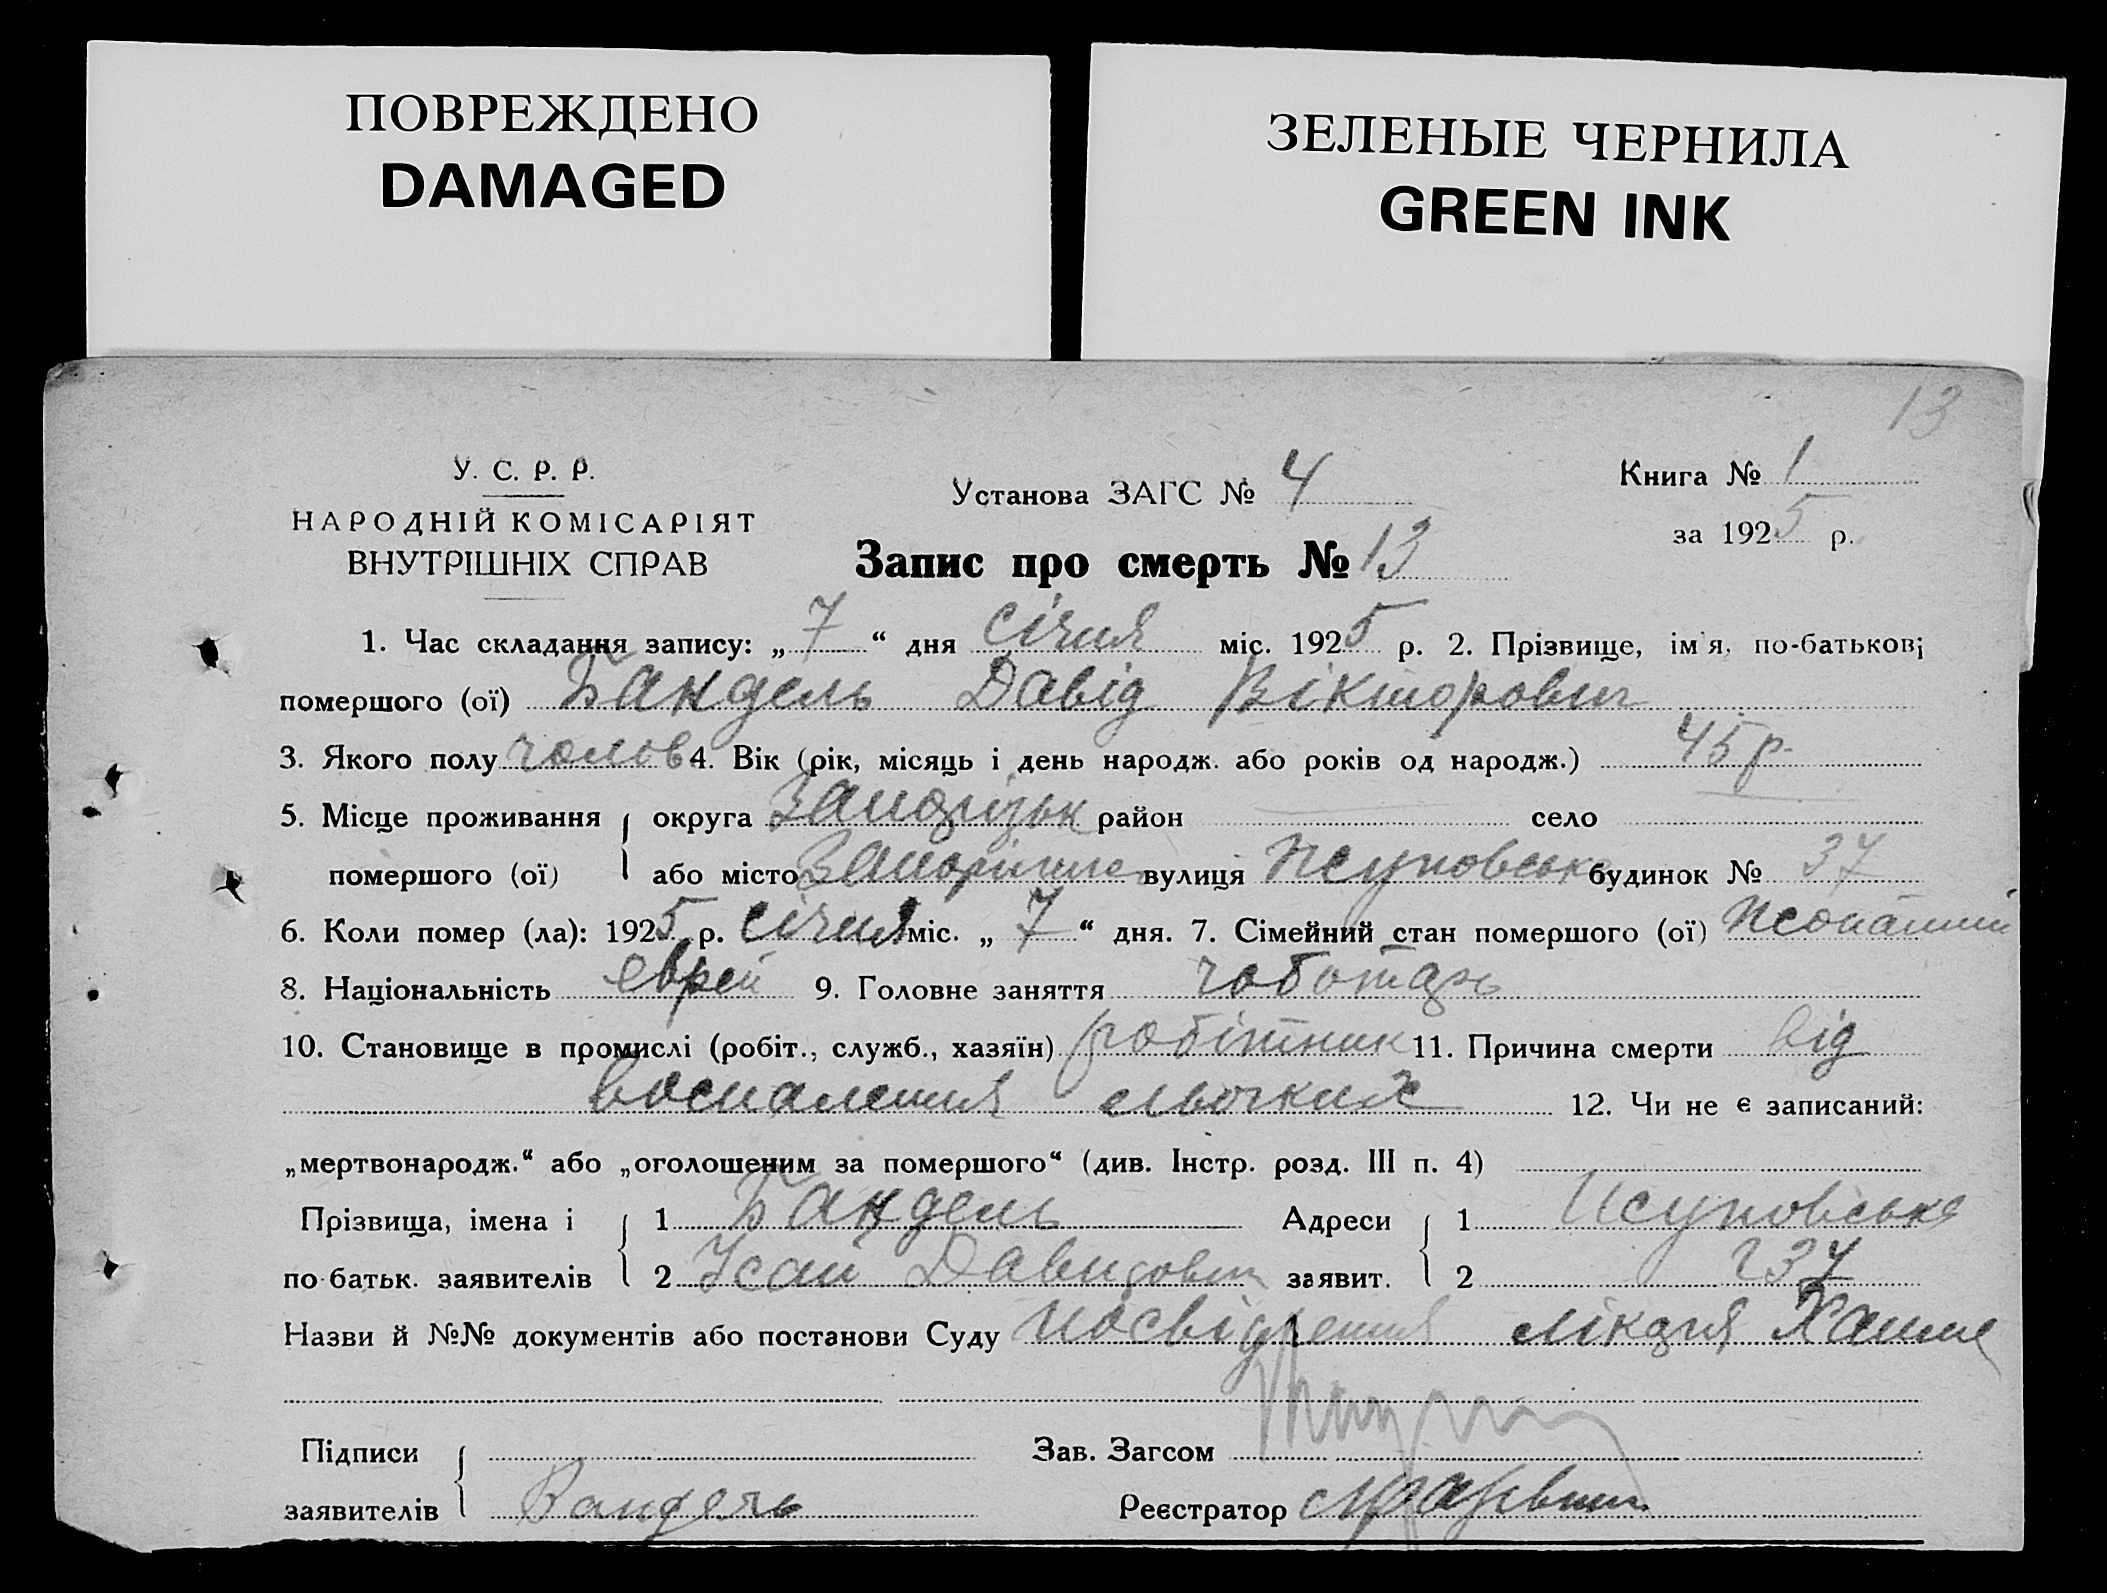 ПОВРЕЖДЕНО
DAMAGED
ЗЕЛЕНЫЕ ЧЕРНИЛА
GREEN INK
13
У. С. Р. Р.
НАРОДНІЙ КОМІСАРІЯТ
ВНУТРІШНІХ СПРАВ
Установа ЗАГС № 4
Книга № 1
за 1925 р.
Запис про смерть № 13
1. Час складання запису: „7“ дня Січня міс. 1925 р. 2. Прізвище, ім'я, по-батькові
помершого (ої) Бандель Давід Вікторович
3. Якого полу чолов 4. Вік (рік, місяць і день народж. або років од народж.) 45 р.
5. Місце проживання округа Запорізьк район село
помершого (ої) або місто Запоріжже вулиця будинок № 37
6. Коли помер (ла): 1925 р. Січня міс. „7“ дня. 7. Сімейний стан помершого (ої)
8. Національність еврей 9. Головне заняття чоботарь
10. Становище в промислі (робіт., служб., хазяїн) робітник 11. Причина смерти від
воспалення льогких 12. Чи не є записаний:
„мертвонародж.“ або „оголошеним за помершого“ (див. Інстр. розд. III п. 4)
Прізвища, імена і 1 Бандель Адреси 1
по-батьк. заявителів 2 Ісай Давидович заявит. 2 37
Назви й №№ документів або постанови Суду посвідчення лікаря
Підписи Зав. Загсом
заявителів Бандель Реєстратор